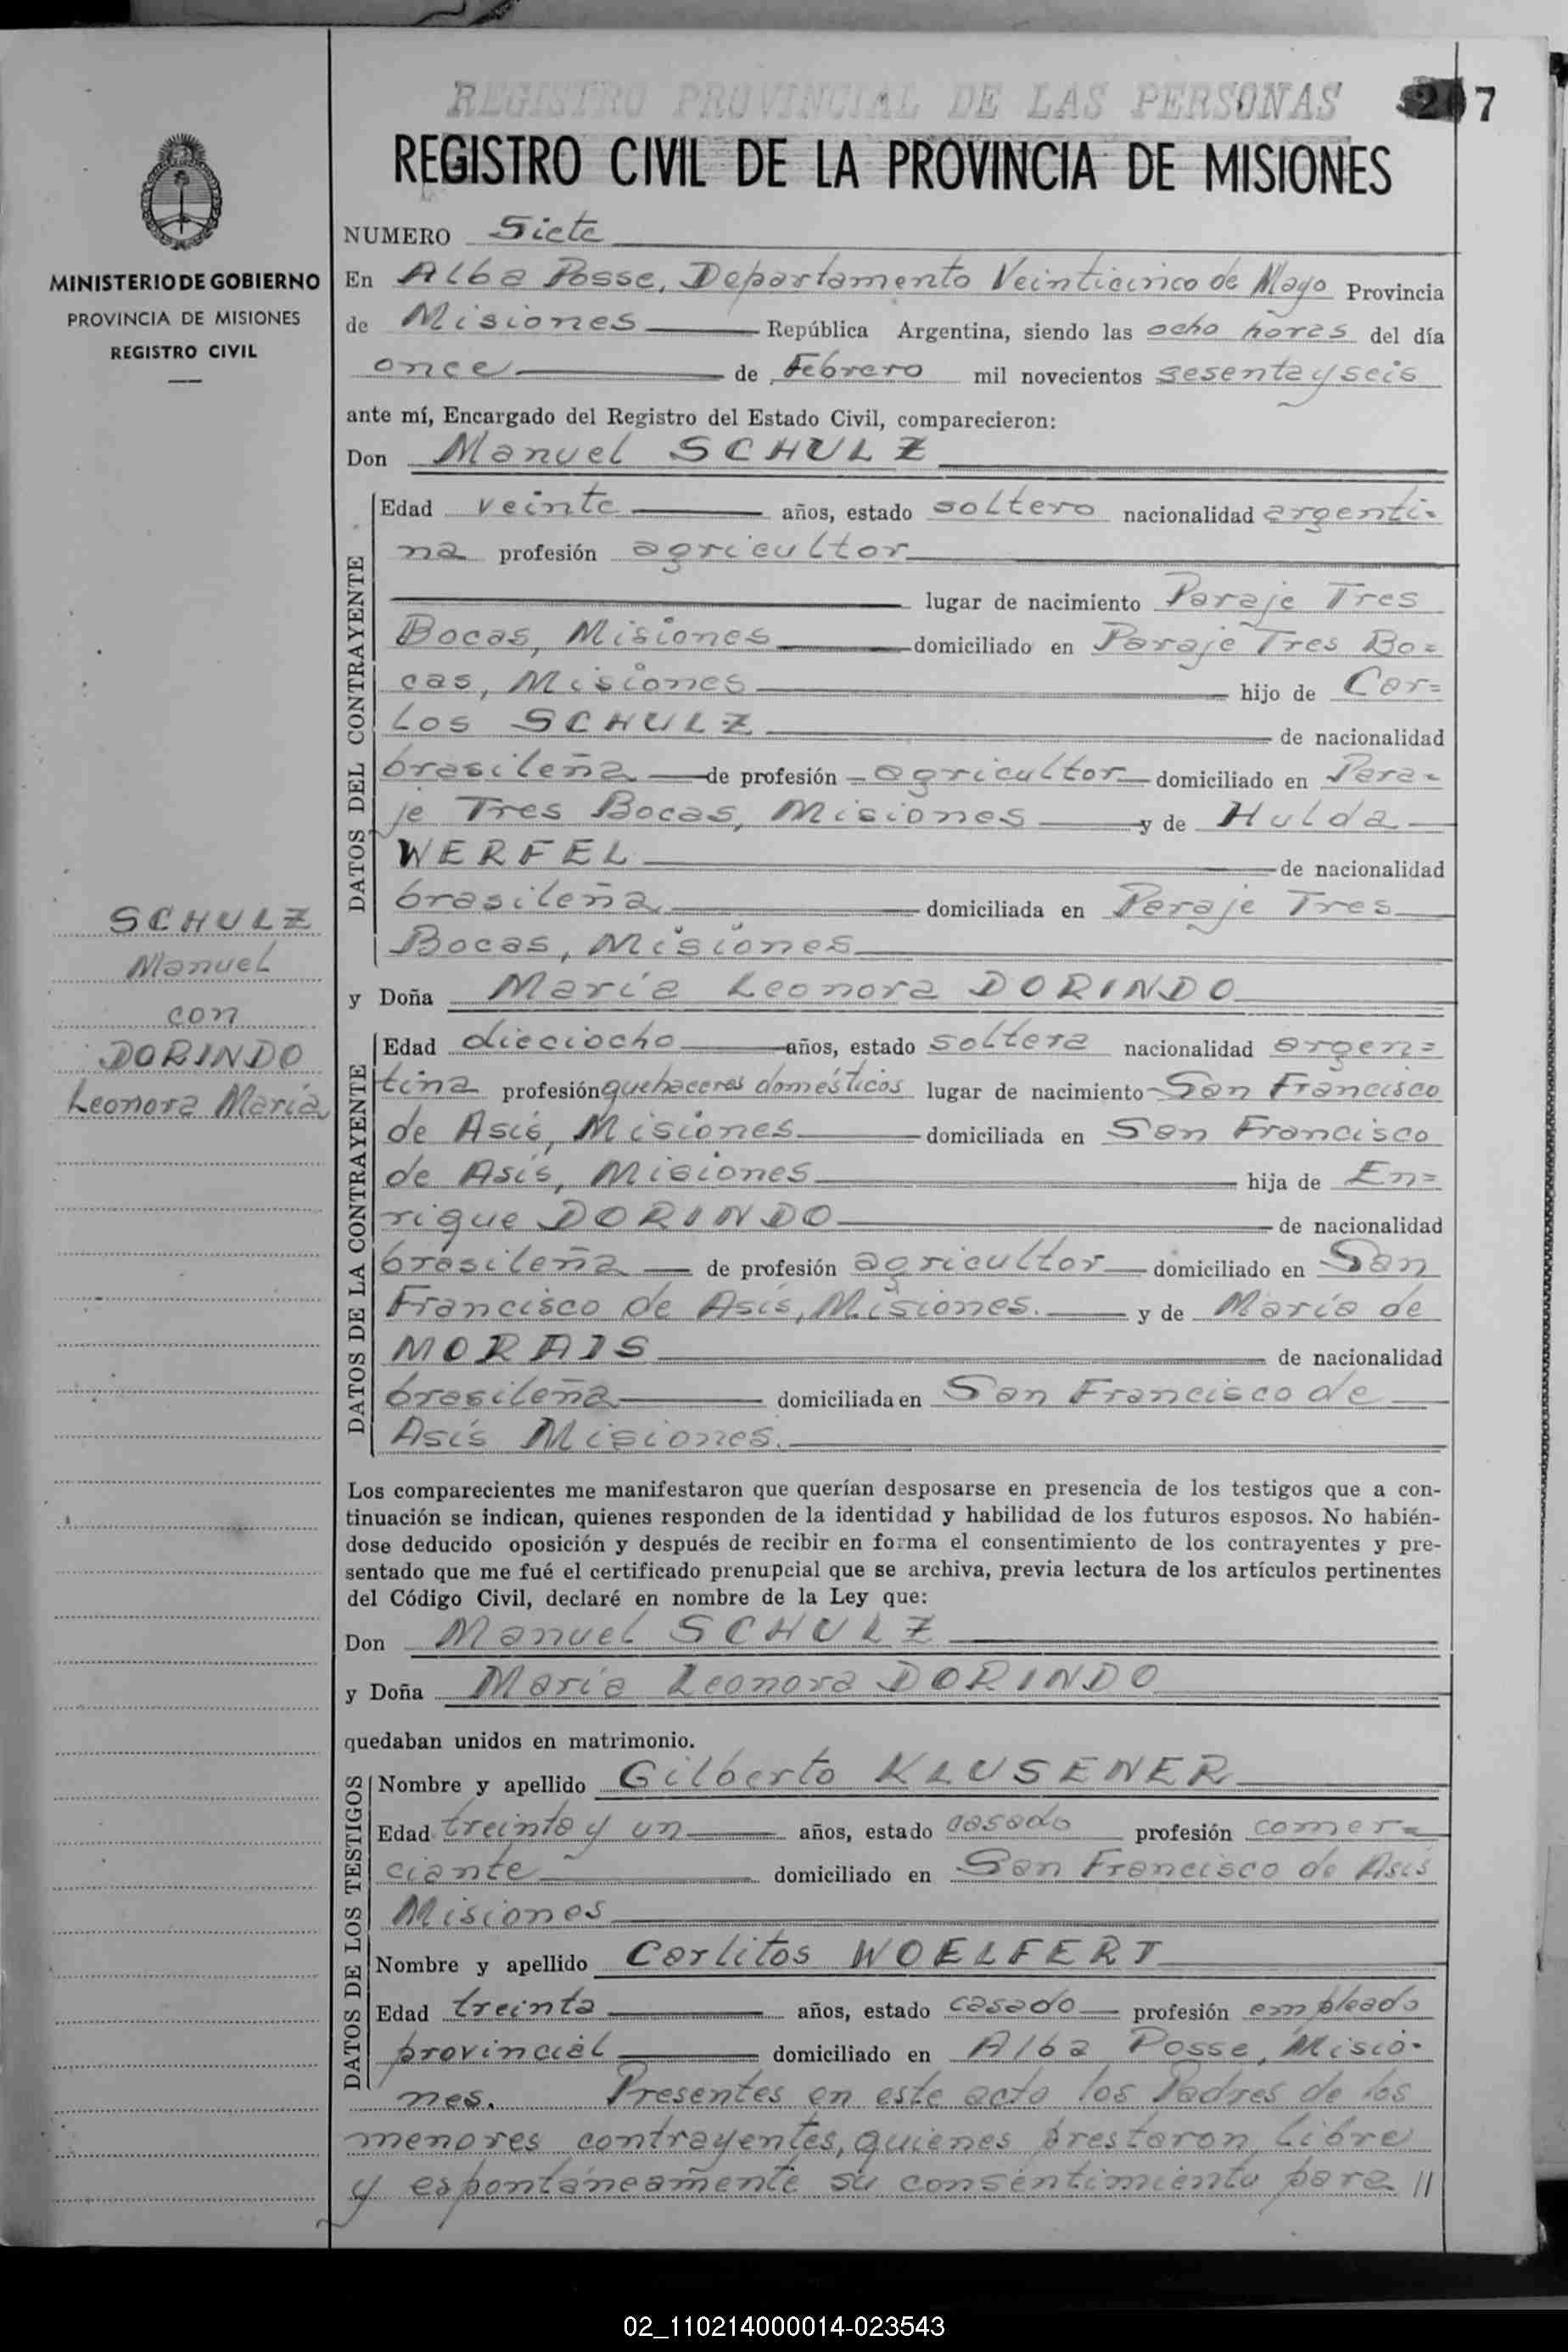 REGISTRO PROVINCIAL DE LAS PERSONAS
7
REGISTRO CIVIL DE LA PROVINCIA DE MISIONES
MINISTERIO DE GOBIERNO
PROVINCIA DE MISIONES
REGISTRO CIVIL
SCHULZ
Manuel
con
DORINDO
Leonora María
NUMERO Siete
En Alba Posse, Departamento Veinticinco de Mayo Provincia
de Misiones República Argentina, siendo las ocho horas del día
once de Febrero mil novecientos sesenta y seis
ante mí, Encargado del Registro del Estado Civil, comparecieron:
Don Manuel SCHULZ
DATOS DEL CONTRAYENTE
Edad veinte años, estado soltero nacionalidad argenti-
na profesión agricultor
lugar de nacimiento Paraje Tres
Bocas, Misiones domiciliado en Paraje Tres Bo=
cas, Misiones hijo de Car=
los SCHULZ de nacionalidad
brasileña de profesión agricultor domiciliado en Para-
je Tres Bocas, Misiones y de Hulda
WERFEL de nacionalidad
brasileña domiciliada en Paraje Tres
Bocas, Misiones
y Doña María Leonora DORINDO
DATOS DE LA CONTRAYENTE
Edad dieciocho años, estado soltera nacionalidad argen=
tina profesión quehaceres domésticos lugar de nacimiento San Francisco
de Asís, Misiones domiciliada en San Francisco
de Asís, Misiones hija de En=
rique DORINDO de nacionalidad
brasileña de profesión agricultor domiciliado en San
Francisco de Asís, Misiones. y de María de
MORAIS de nacionalidad
brasileña domiciliada en San Francisco de
Asís Misiones.
Los comparecientes me manifestaron que querían desposarse en presencia de los testigos que a con-
tinuación se indican, quienes responden de la identidad y habilidad de los futuros esposos. No habién-
dose deducido oposición y después de recibir en forma el consentimiento de los contrayentes y pre-
sentado que me fué el certificado prenupcial que se archiva, previa lectura de los artículos pertinentes
del Código Civil, declaré en nombre de la Ley que:
Don Manuel SCHULZ
y Doña María Leonora DORINDO
quedaban unidos en matrimonio.
DATOS DE LOS TESTIGOS
Nombre y apellido Gilberto KLUSENER
Edad treinta y un años, estado casado profesión comer=
ciante domiciliado en San Francisco de Asís
Misiones
Nombre y apellido Carlitos WOELFERT
Edad treinta años, estado casado profesión empleado
provincial domiciliado en Alba Posse, Misio-
nes. Presentes en este acto los Padres de los
menores contrayentes, quienes prestaron libre
y espontáneamente su consentimiento para //
02_110214000014-023543